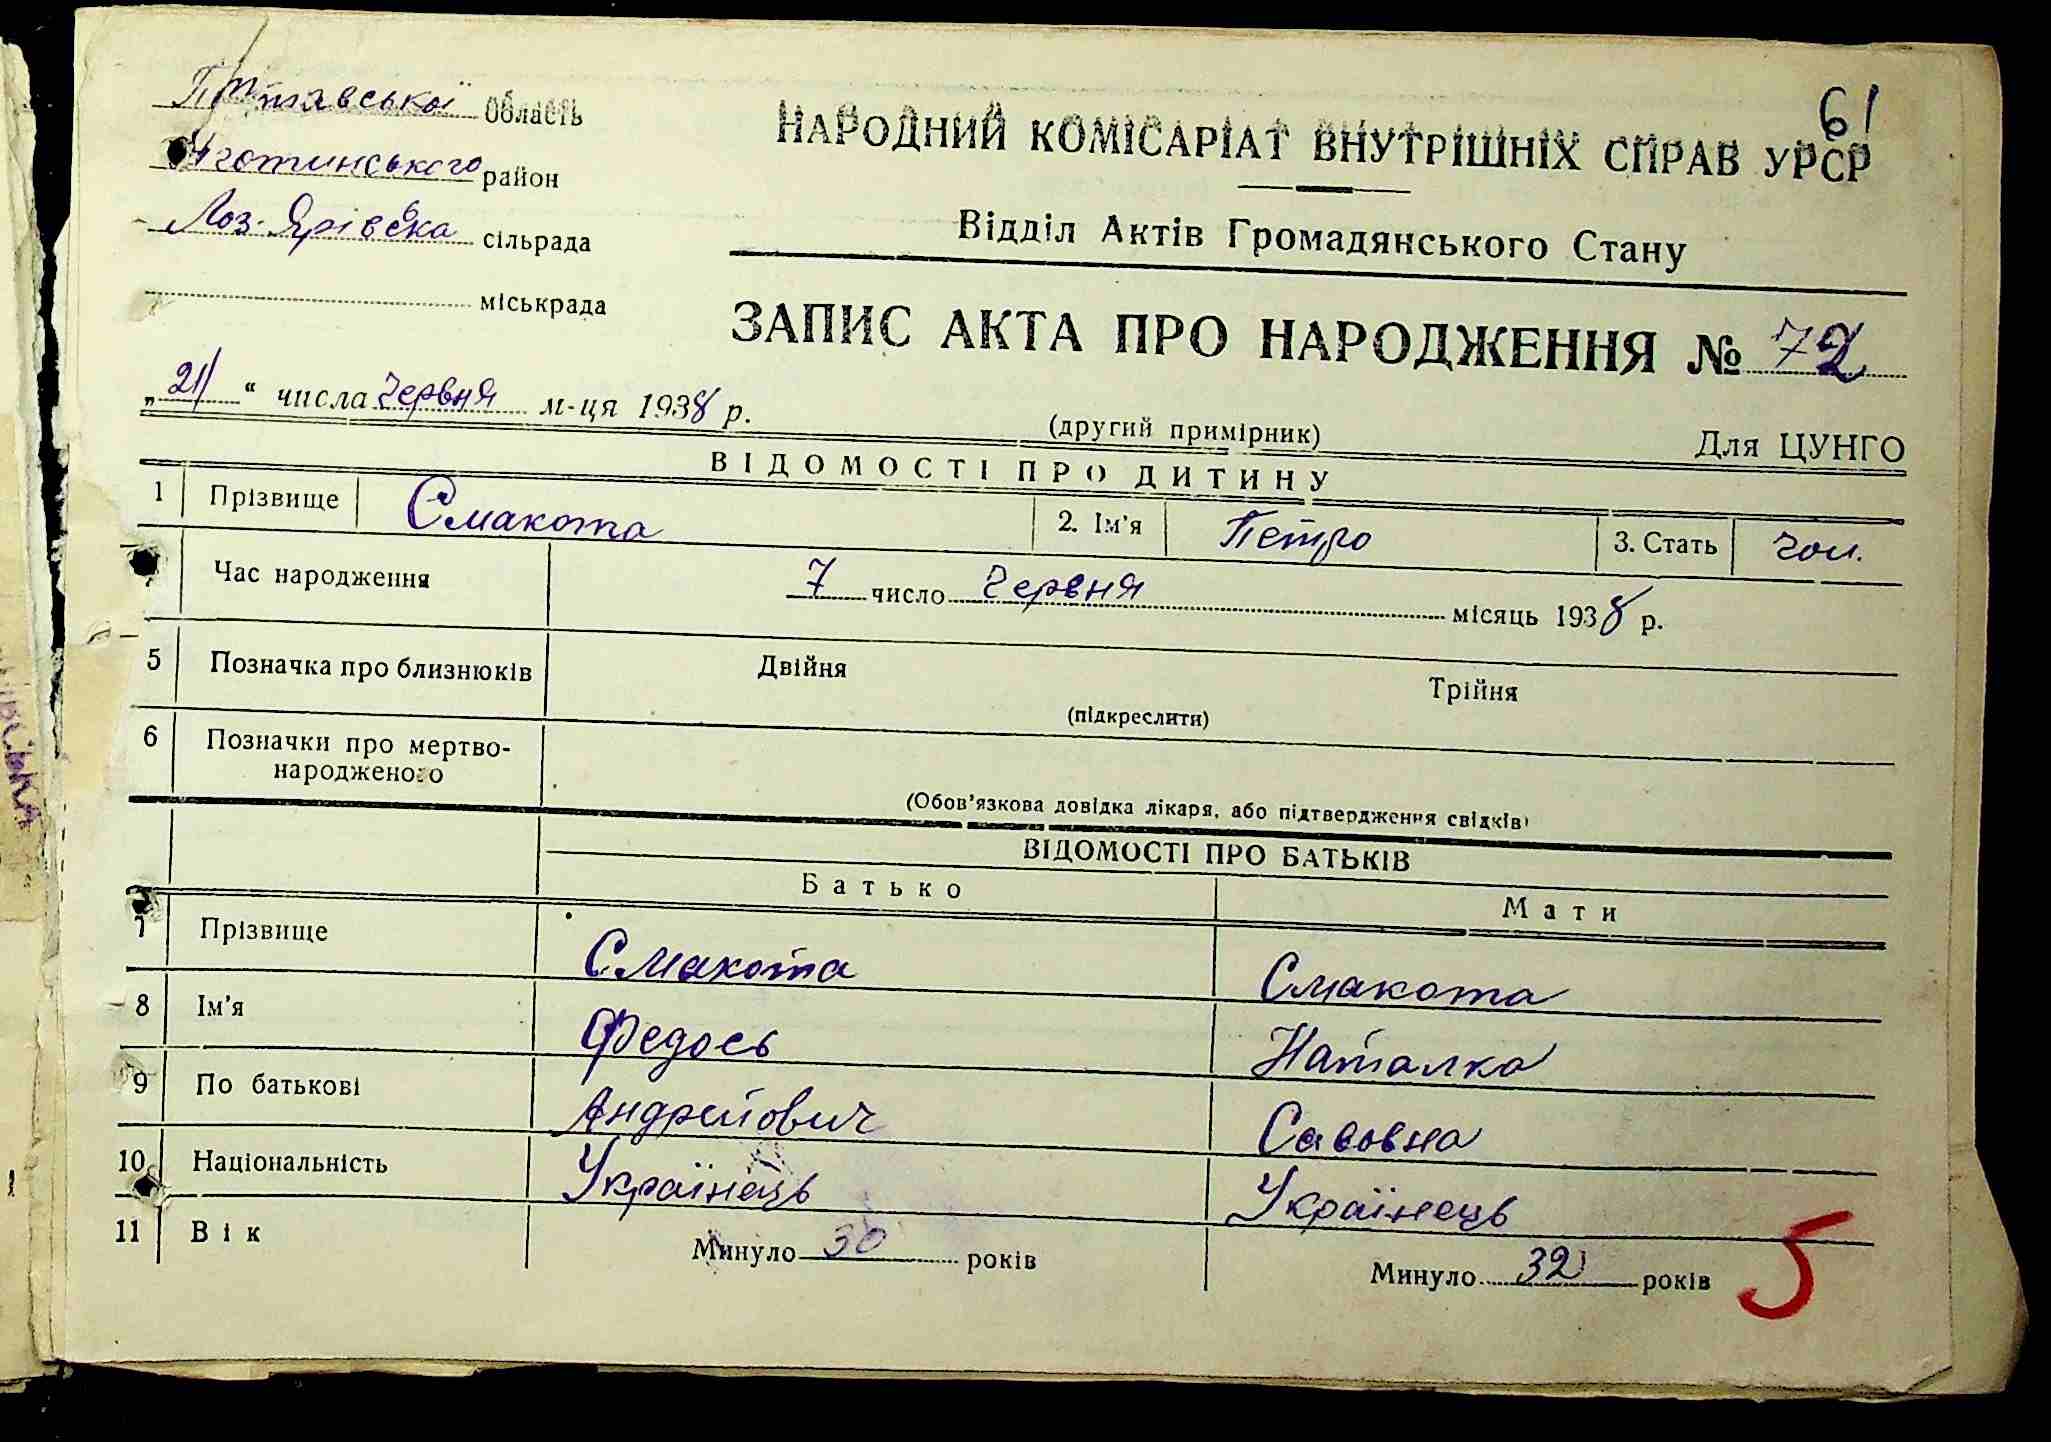 Полтавської область
Яготинського район
Лоз-Ярівська сільрада
міськрада
61
НАРОДНИЙ КОМІСАРІАТ ВНУТРІШНІХ СПРАВ УРСР
Відділ Актів Громадянського Стану
ЗАПИС АКТА ПРО НАРОДЖЕННЯ № 72
„21“ числа червня м-ця 1938 р.
(другий примірник)
Для ЦУНГО
ВІДОМОСТІ ПРО ДИТИНУ
1 Прізвище Смакота 2. Ім'я Петро 3. Стать чол.
Час народження 7 число червня місяць 1938 р.
5 Позначка про близнюків Двійня Трійня
(підкреслити)
6 Позначки про мертво-
народженого
(Обов'язкова довідка лікаря, або підтвердження свідків)
ВІДОМОСТІ ПРО БАТЬКІВ
Батько Мати
7 Прізвище Смакота Смакота
8 Ім'я Федось Наталка
9 По батькові Андрейович Савовна
10 Національність Українець Українець
11 Вік Минуло 30 років Минуло 32 років
5